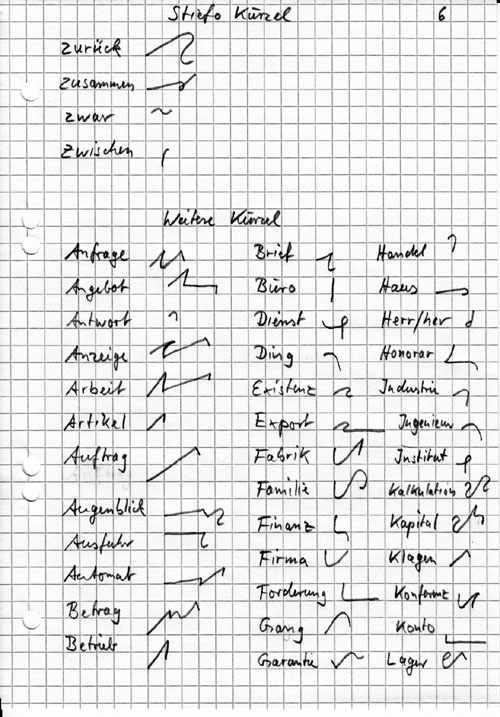 Stiefo Kürzel 6
zurück
zusammen
zwar
zwischen
Weitere Kürzel
Anfrage Brief Handel
Angebot Büro Haus
Antwort Dienst Herr/her
Anzeige Ding Honorar
Arbeit Existenz Industrie
Artikel Export Ingenieur
Auftrag Fabrik Institut
Familie Kalkulation
Augenblick Finanz Kapital
Ausfuhr Firma Klagen
Automat Forderung Konferenz
Betrag Gang Konto
Betrieb Garantie Lager